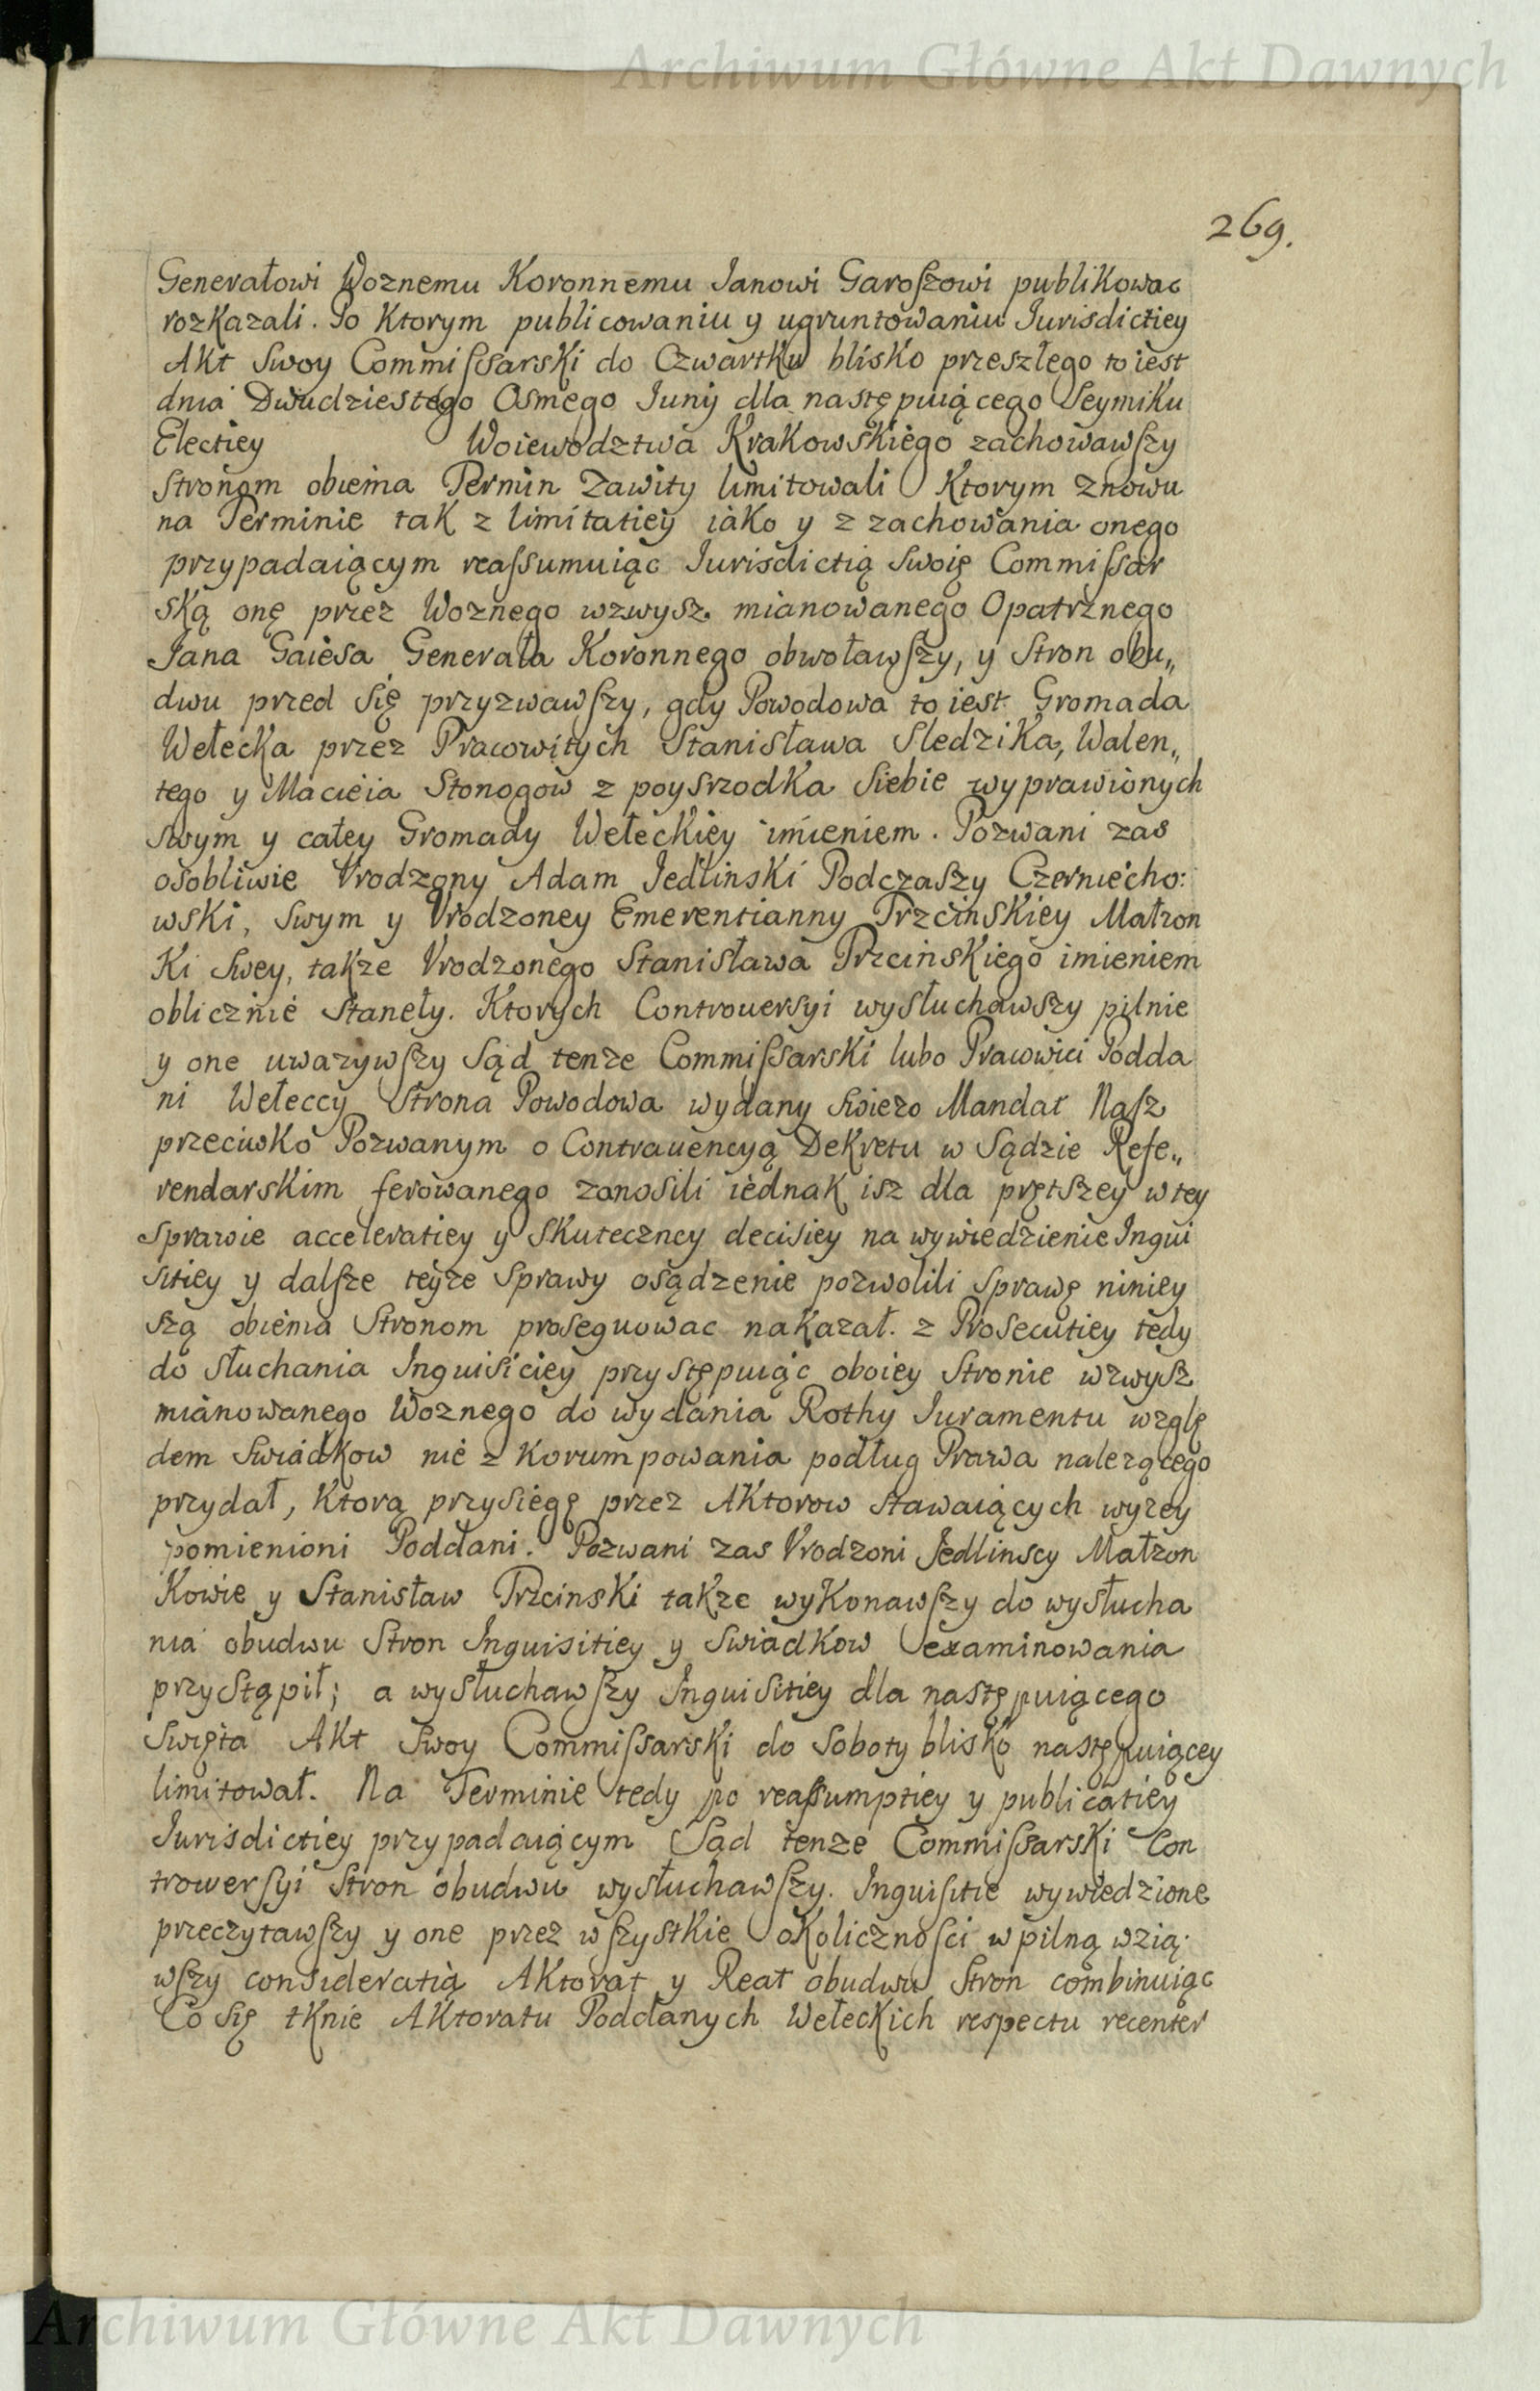 Archiwum Główne Akt Dawnych
269.
Generałowi Woznemu Koronnemu Janowi Garoszowi publikowac
rozkazali. Po ktorym publicowaniu y ugruntowaniu Jurisdictiey
Akt Swoy Commissarski do Czwartku blisko przeszłego to iest
dnia Dwudziestego Osmego Juny dla następuiącego Seymiku
Electiey Woiewodztwa Krakowskiego zachowawszy
Stronom obiema Termin Zawity limitowali Ktorym znowu
na Terminie tak z limitatiey iako y z zachowania onego
przypadaiącym reassumuiąc Jurisdictią Swoię Commissar
ską onę przez Woznego wzwysz mianowanego Opatrznego
Jana Gaiesa Generała Koronnego obwoławszy, y Stron obu„
dwu przed Się przyzwawszy, gdy Powodowa to iest Gromada
Wełecka przez Pracowitych Stanisława Sledzika, Walen„
tego y Macieia Stonogow z poysrzodka Siebie wyprawionych
swym y całey Gromady Wełeckiey imieniem. Pozwani zas
osobliwie Vrodzony Adam Jedlinski Podczaszy Czerniecho:
wski, swym y Vrodzoney Emerentianny Trzcinskiey Małzon
ki swey, takze Vrodzonego Stanisława Trzcinskiego imieniem
oblicznie Staneły. Ktorych Controuersyi wysłuchawszy pilnie
y one uwazywszy Sąd tenze Commissarski lubo Pracowici Podda
ni Wełeccy Strona Powodowa wydany swiezo Mandat Nasz
przeciwko Pozwanym o Contrauencyą Dekretu w Sądzie Refe„
rendarskim ferowanego zanosili iednak isz dla prętszey w tey
sprawie acceleratiey y skuteczney decisiey na wywiedzienie Inqui
sitiey y dalsze teyze sprawy osądzenie pozwolili sprawę niniey
szą obiema Stronom prosequowac nakazał. z Prosecutiey tedy
do słuchania Inquisiciey przystępuiąc oboiey Stronie wzwysz
mianowanego Woznego do wydania Rothy Juramentu wzglę
dem Swiadkow nie z korumpowania podług Prawa nalezącego
przydał, Ktorą przysiegę przez Aktorow stawaiących wyzey
pomienioni Poddani. Pozwani zas Vrodzoni Jedlinscy Małzon
kowie y Stanisław Trzcinski takze wykonawszy do wysłucha
nia obudwu Stron Inquisitiey y Swiadkow examinowania
przystąpił; a wysłuchawszy Inquisitiey dla następuiącego
Swięta Akt Swoy Commissarski do Soboty blisko następuiącey
limitował. Na Terminie tedy po reassumptiey y publicatiey
Jurisdictiey przypadaiącym Sąd tenze Commissarski Con
trowersyi Stron obudwu wysłuchawszy. Inquisitie wywiedzione
przeczytawszy y one przez wszystkie okolicznosci w pilną wzią
wszy consideratią Aktorat y Reat obudwu Stron combinuiąc
Co się tknie Aktoratu Poddanych Wełeckich respectu recenter
Archiwum Główne Akt Dawnych